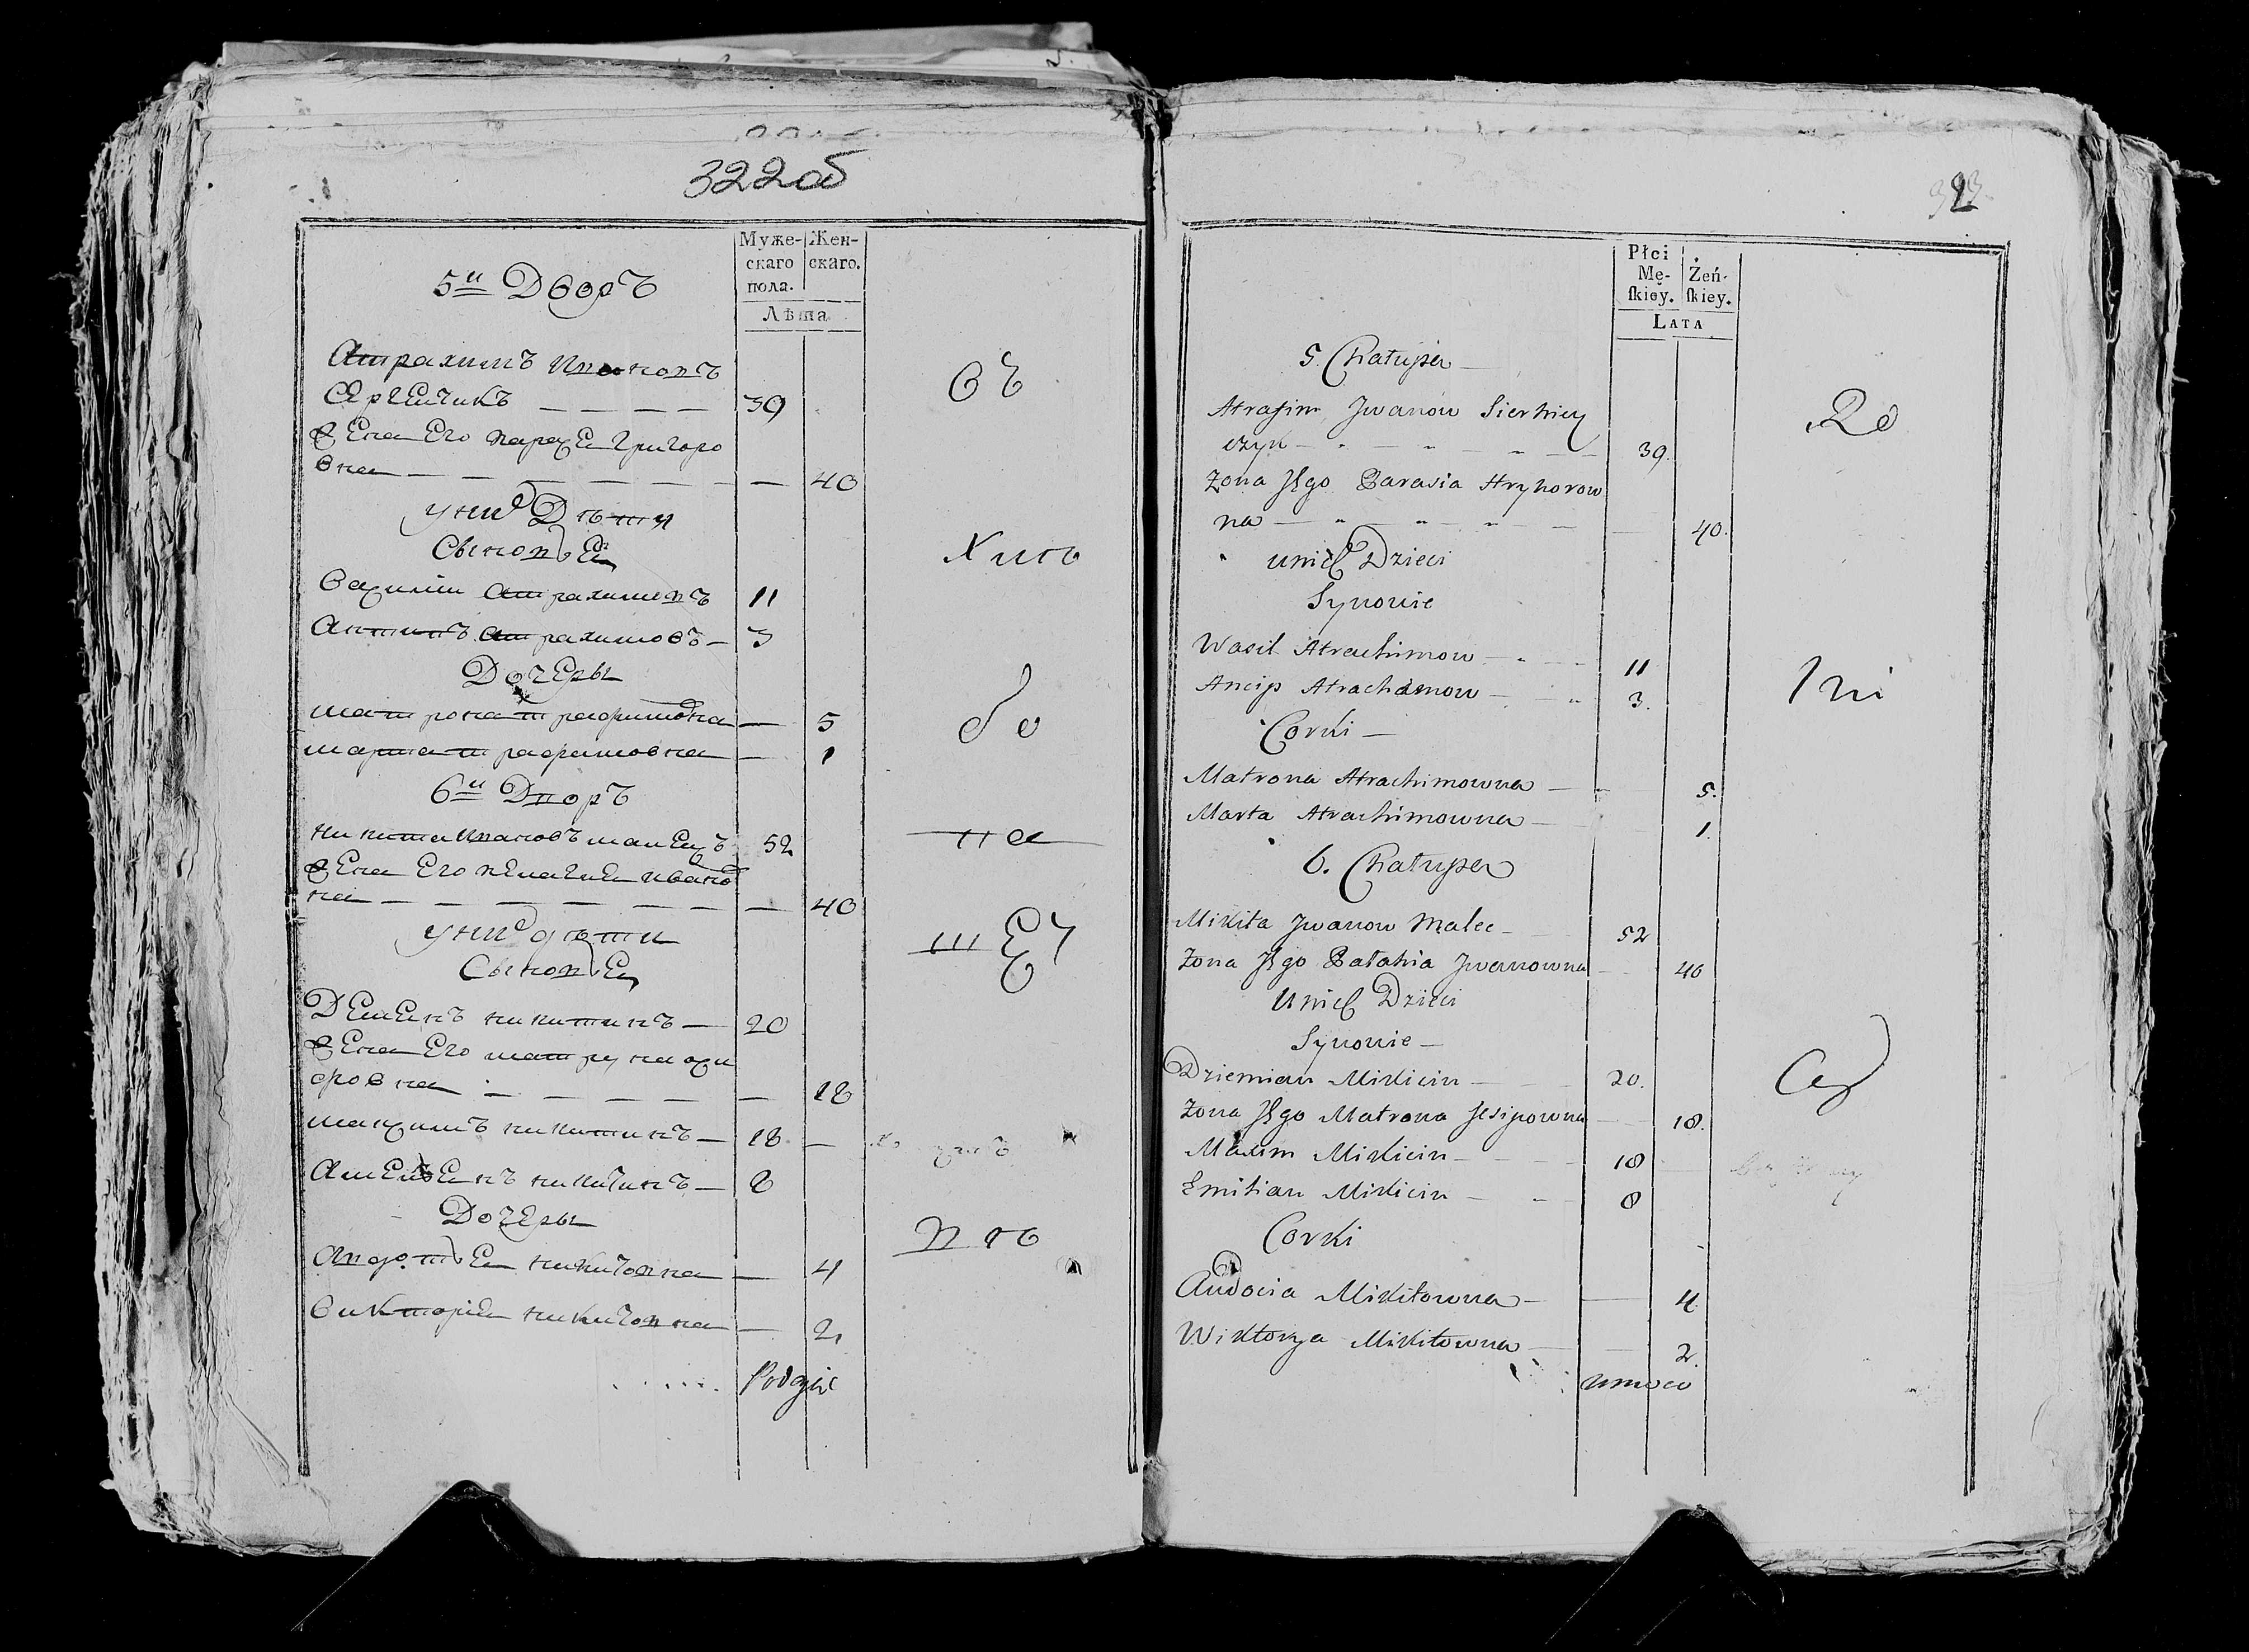 322об
Муже-
скаго
пола.
Жен-
скаго.
Лѣта
5й Дворъ
Атрахимъ Ивановъ
Сергейчикъ — — — — 39
Жена Его Параска Григоро
вна — — — — — — 40
У них Дѣти
Сыновъя
Василій Атрахимовъ 11
Антипъ Атрахимовъ — 3
Дочеры
Матрона Трафимовна — 5
Марта Трафимовна — 1
6й Дворъ
Никита Ивановъ Малецъ 52
Жена Его Пелагия Ивано
на — — — — — — 40
У них дѣти
Сыновъя
Демьянъ Никитинъ — 20
Жена Его Матруна
фовна — — — — 18
Максимъ Никитинъ — 18 —
Амельянъ Никитинъ — 8
Дочеры
Авдотъя Никитовна — 4
Викторія Никитовна — 2
въ
хиль
бо
на
шей
пѣ
Płci
Mę-
skiey.
Żeń-
skiey.
LATA
5. Chałupa
Atrafim Jwanow Sierhiey
czyk — — — 39.
Żona Jego Parasia Hryhorow
na — — — — 40.
u nich Dzieci
Synowie
Wasil Atrachimow — 11
Ancip Atrachimow — 3.
Corki —
Matrona Atrachimowna — 5.
Marta Atrachimowna — 1.
6. Chałupa
Mikita Jwanow Malec — 52
Żona Jego Pałahia Jwanowna — 40
U nich Dzieci
Synowie —
Dziemian Mikicin — 20.
Żona Jego Matrona Jesipowna — 18.
Maxim Mikicin — 18
Emilian Mikicin — 8
Corki
Audocia Mikitowna — 4
Wiktorya Mikitowna — 2.